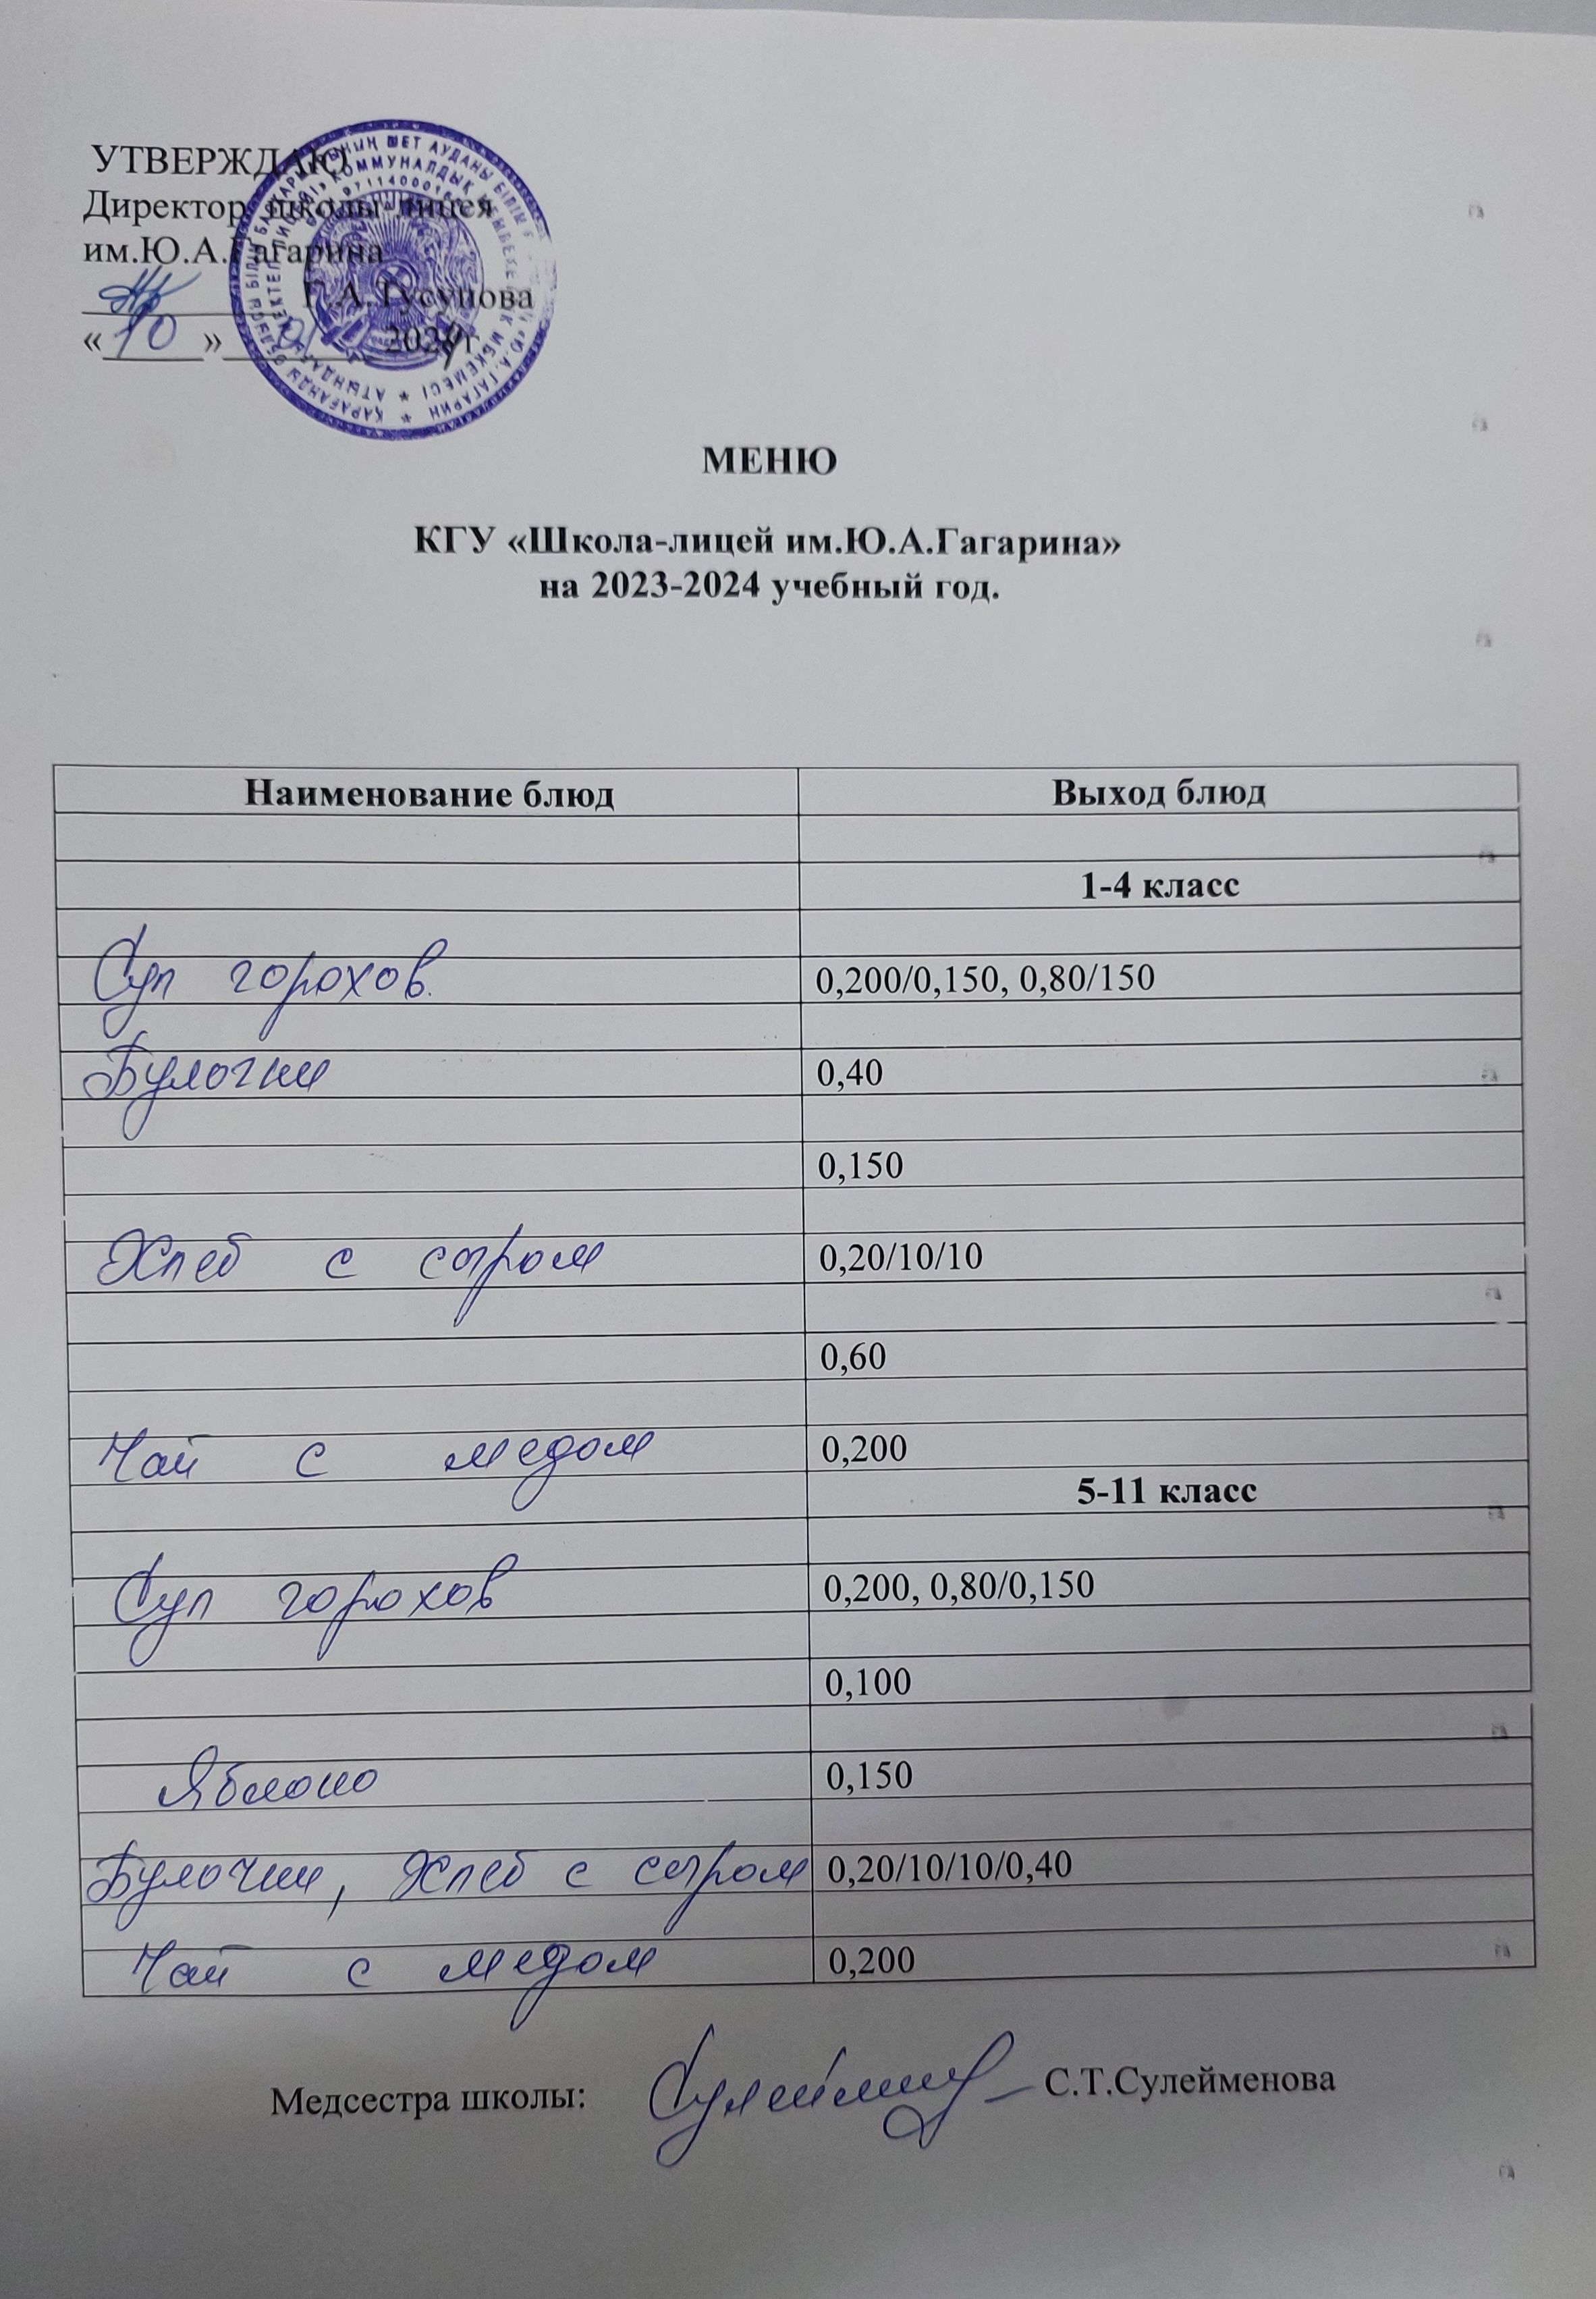 УТВЕРЖДАЮ
Директор школы-лицея
им.Ю.А.Гагарина
Г.А.Тусупова
«10» 01 2024г
МЕНЮ
КГУ «Школа-лицей им.Ю.А.Гагарина»
на 2023-2024 учебный год.
Наименование блюд Выход блюд
1-4 класс
Суп горохов. 0,200/0,150, 0,80/150
Булочки 0,40
0,150
Хлеб с сыром 0,20/10/10
0,60
Чай с медом 0,200
5-11 класс
Суп горохов 0,200, 0,80/0,150
0,100
Яблоко 0,150
Булочки, Хлеб с сыром 0,20/10/10/0,40
Чай с медом 0,200
Медсестра школы: С.Т.Сулейменова